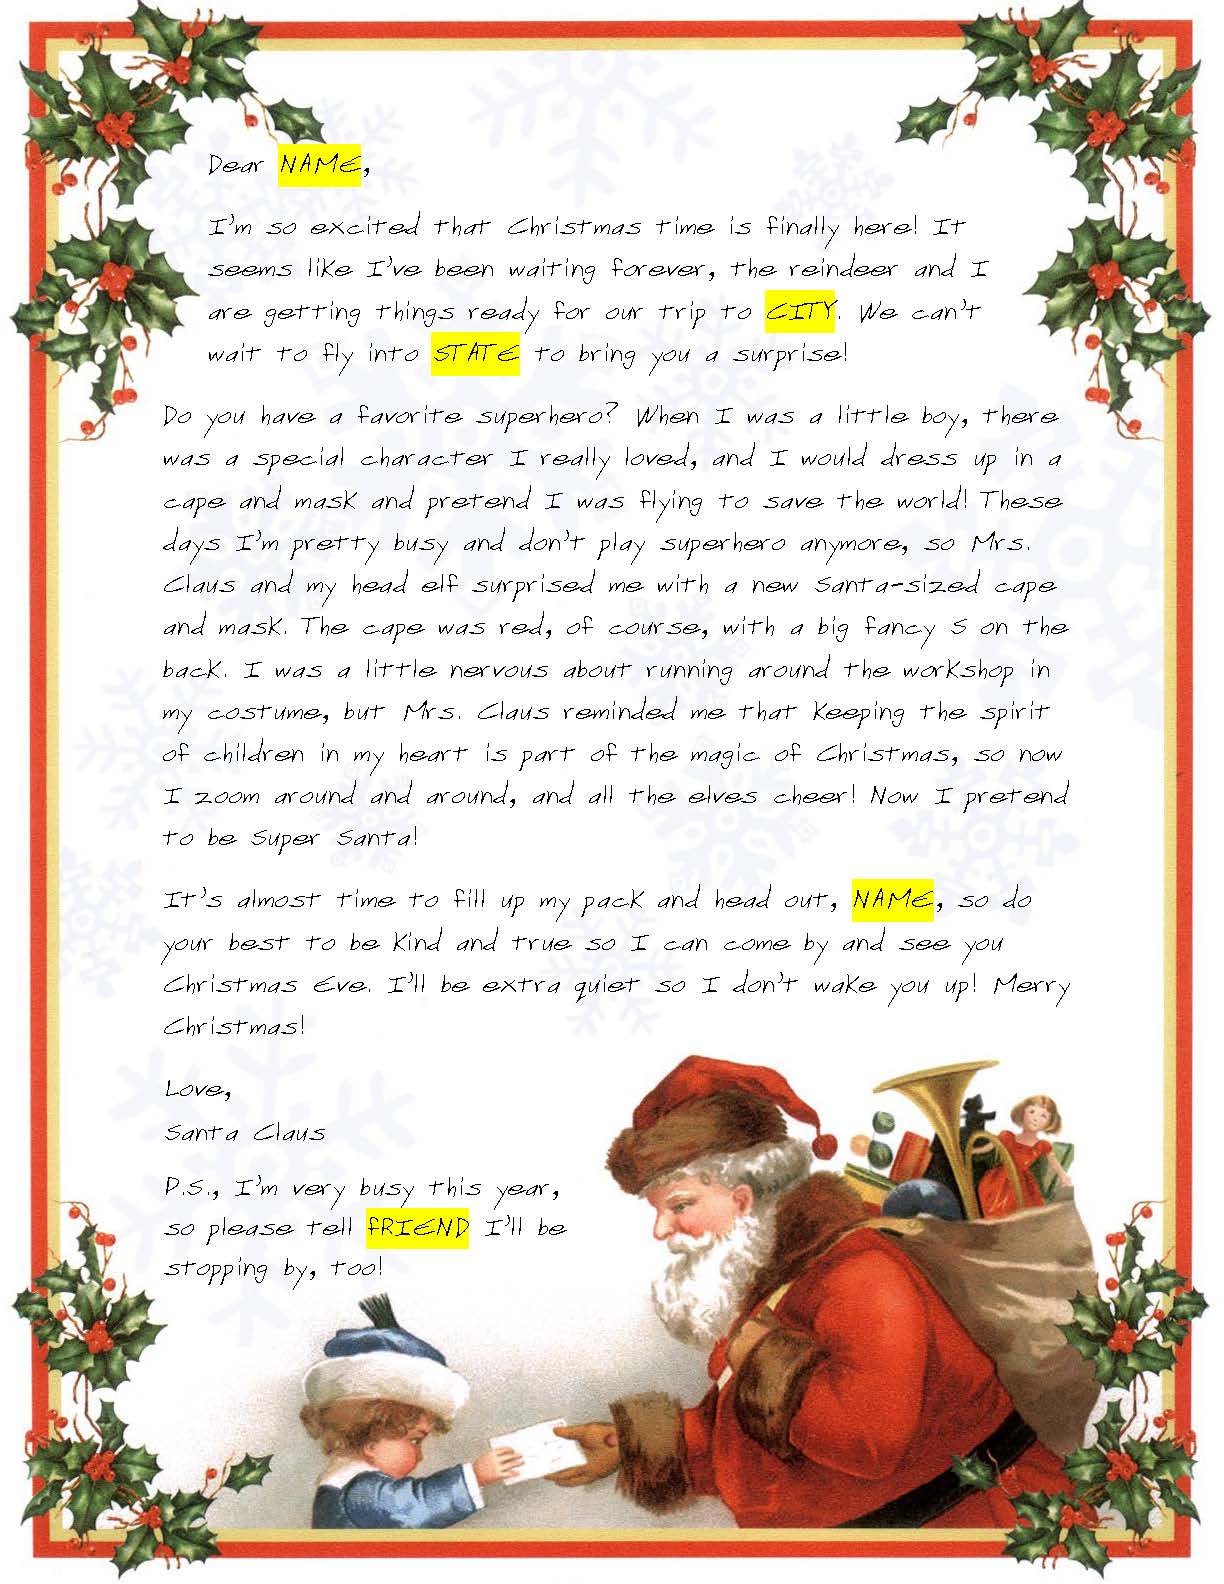 Dear NAME,
I'm so excited that Christmas time is finally here! It
seems like I've been waiting forever, the reindeer and I
are getting things ready for our trip to CITY. We can't
wait to fly into STATE to bring you a surprise!
Do you have a favorite superhero? When I was a little boy, there
was a special character I really loved, and I would dress up in a
cape and mask and pretend I was flying to save the world! These
days I'm pretty busy and don't play superhero anymore, so Mrs.
Claus and my head elf surprised me with a new Santa-sized cape
and mask. The cape was red, of course, with a big fancy S on the
back. I was a little nervous about running around the workshop in
my costume, but Mrs. Claus reminded me that keeping the spirit
of children in my heart is part of the magic of Christmas, so now
I zoom around and around, and all the elves cheer! Now I pretend
to be Super Santa!
It's almost time to fill up my pack and head out, NAME, so do
your best to be kind and true so I can come by and see you
Christmas Eve. I'll be extra quiet so I don't wake you up! Merry
Christmas!
Love,
Santa Claus
P.S., I'm very busy this year,
so please tell FRIEND I'll be
stopping by, too!